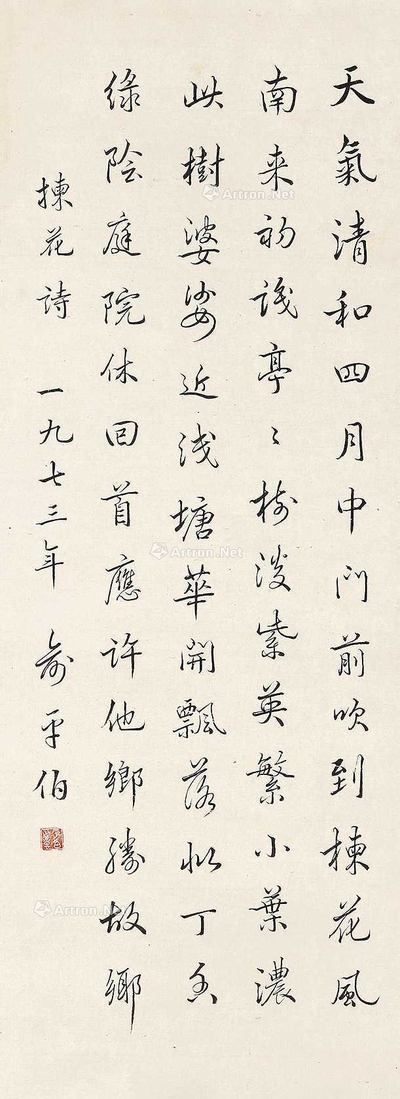 天氣清和四月中门前吹到楝花風
南来初識亭〻樹淡紫英繁小葉濃
此樹婆娑近浅塘華開飄落似丁香
緑陰庭院休回首應许他鄉勝故鄉
楝花詩 一九七三年 俞平伯
Artron.Net